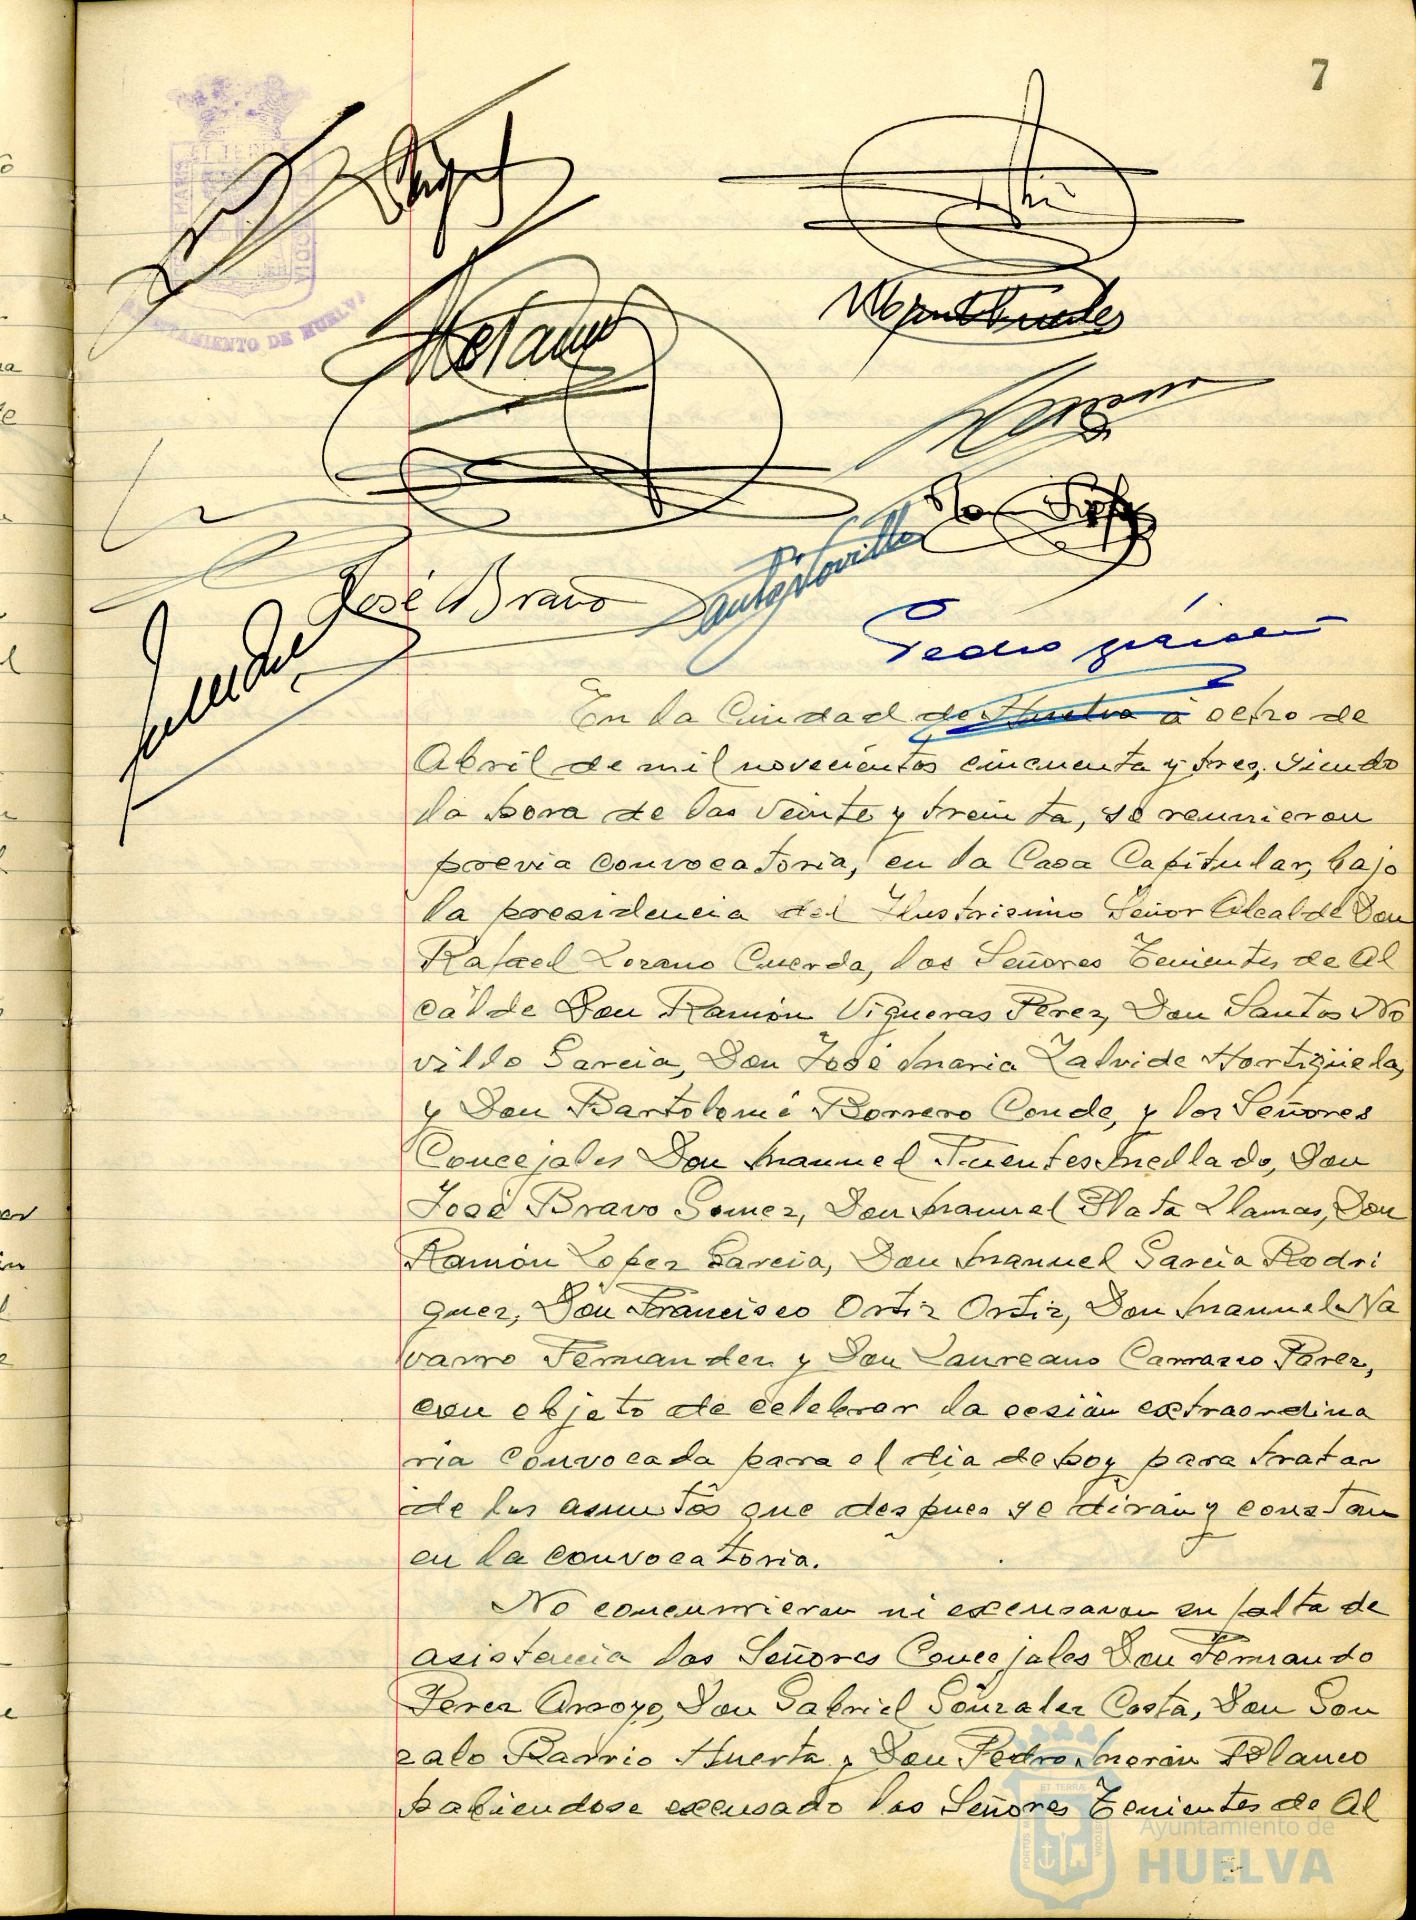 7
AYUNTAMIENTO DE HUELVA
José Bravo
Pedro García
En la Ciudad de Huelva á ocho de
Abril de mil novecientos cincuenta y tres, siendo
la hora de las veinte y treinta, se reunieron
previa convocatoria, en la Casa Capitular, bajo
la presidencia del Ilustrisimo Señor Alcalde Don
Rafael Lozano Cuerda, los Señores Tenientes de Al
calde Don Ramón Vigueras Perez, Don Santos No
villo Garcia, Don José Maria Zalvide Hortigüela,
y Don Bartolomé Borrero Conde, y los Señores
Concejales Don Manuel Fuentes Mellado, Don
José Bravo Gomez, Don Manuel Plata Llamas, Don
Ramón Lopez Garcia, Don Manuel Garcia Rodri
guez, Don Francisco Ortiz Ortiz, Don Manuel Na
varro Fernandez y Don Laureano Carrazco Perez,
con objeto de celebrar la sesión extraordina
ria convocada para el dia de hoy para tratar
de los asuntos que despues se dirán y constan
en la convocatoria.
No concurrieron ni excusaron su falta de
asistencia los Señores Concejales Don Fernando
Perez Arroyo, Don Gabriel Gonzalez Costa, Don Gon
zalo Barrio Huerta y Don Pedro Morón Blanco
habiendose excusado los Señores Tenientes de Al
Ayuntamiento de
HUELVA